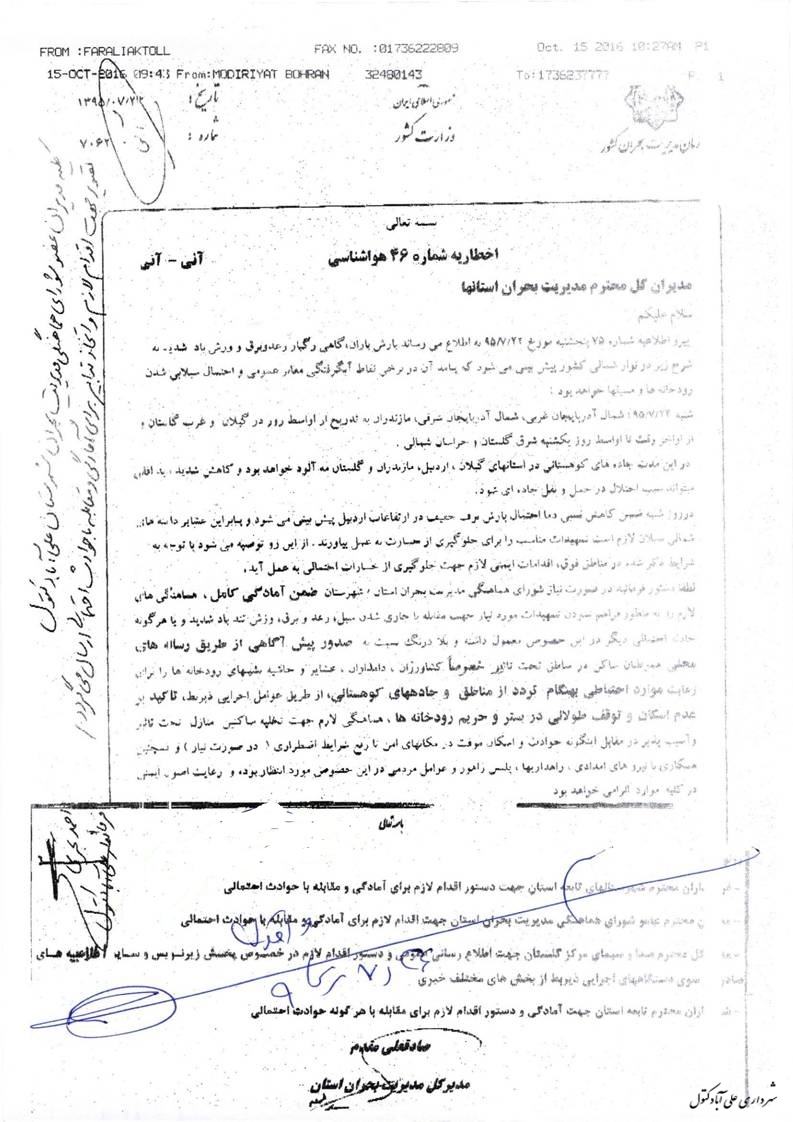 FROM :FARALIAKTOLL FAX NO. :01736222809 Oct. 15 2016 10:27AM P1
15-OCT-2016 09:43 From:MODIRIYAT BOHRAN 32480143 To:1736237777 P. 1
جمهوری اسلامی ایران
وزارت کشور
سازمان مدیریت بحران کشور
تاریخ:
شماره:
۷۰۶۲
بسمه تعالی
اخطاریه شماره ۴۶ هواشناسی آنی - آنی
مدیران کل محترم مدیریت بحران استانها
سلام علیکم
پیرو اطلاعیه شماره ۷۵ پنجشنبه مورخ ۹۵/۷/۲۲ به اطلاع می رساند بارش باران، گاهی رگبار رعدوبرق و وزش باد شدید به
شرح زیر در نوار شمالی کشور پیش بینی می شود که پیامد آن در برخی نقاط آبگرفتگی معابر عمومی و احتمال سیلابی شدن
رودخانه ها و مسیلها خواهد بود :
شنبه ۹۵/۷/۲۴؛ شمال آذربایجان غربی، شمال آذربایجان شرقی، مازندران به تدریج از اواسط روز در گیلان و غرب گلستان و
از اواخر وقت تا اواسط روز یکشنبه شرق گلستان و خراسان شمالی .
در این مدت جاده های کوهستانی در استانهای گیلان ، اردبیل، مازندران و گلستان مه آلود خواهد بود و کاهش شدید دید افقی
میتواند سبب اختلال در حمل و نقل جاده ای شود.
درروز شنبه ضمن کاهش نسبی دما احتمال بارش برف خفیف در ارتفاعات اردبیل پیش بینی می شود و بنابراین عشایر دامنه های
شمالی سبلان لازم است تمهیدات مناسب را برای جلوگیری از خسارت به عمل بیاورند . از این رو توصیه می شود با توجه به
شرایط ذکر شده در مناطق فوق، اقدامات ایمنی لازم جهت جلوگیری از خسارات احتمالی به عمل آید .
لطفا دستور فرمائید در صورت نیاز شورای هماهنگی مدیریت بحران استان / شهرستان ضمن آمادگی کامل ، هماهنگی های
لازم را به منظور فراهم نمودن تمهیدات مورد نیاز جهت مقابله با جاری شدن سیل، رعد و برق، وزش تند باد شدید و یا هرگونه
حادثه احتمالی دیگر در این خصوص معمول داشته و بلا درنگ نسبت به صدور پیش آگاهی از طریق رسانه های
محلی هموطنان ساکن در مناطق تحت تاثیر خصوصاً کشاورزان ، دامداران ، عشایر و حاشیه نشینهای رودخانه ها را برای
رعایت موارد احتیاطی بهنگام تردد از مناطق و جادههای کوهستانی، از طریق عوامل اجرایی ذیربط، تاکید بر
عدم اسکان و توقف طولانی در بستر و حریم رودخانه ها ، هماهنگی لازم جهت تخلیه ساکنین منازل تحت تاثیر
و آسیب پذیر در مقابل اینگونه حوادث و اسکان موقت در مکانهای امن تا رفع شرایط اضطراری ( در صورت نیاز ) و همچنین
همکاری با نیرو های امدادی ، راهداریها ، پلیس راهور و عوامل مردمی در این خصوص مورد انتظار بوده و رعایت اصول ایمنی
در کلیه موارد الزامی خواهد بود
باسمه تعالی
داران محترم شهرستانهای تابعه استان جهت دستور اقدام لازم برای آمادگی و مقابله با حوادث احتمالی
ن محترم عضو شورای هماهنگی مدیریت بحران استان جهت اقدام لازم برای آمادگی و مقابله با حوادث احتمالی
کل محترم صدا و سیمای مرکز گلستان جهت اطلاع رسانی عمومی و دستور اقدام لازم در خصوص پخش زیرنویس و سایر اطلاعیه های
صادر سوی دستگاههای اجرایی ذیربط از بخش های مختلف خبری
اران محترم تابعه استان جهت آمادگی و دستور اقدام لازم برای مقابله با هر گونه حوادث احتمالی
صادقعلی مقدم
مدیرکل مدیریت بحران استان
شهرداری علی آباد کتول
کلیه مدیران عضو شورای هماهنگی مدیریت بحران شهرستان علی آباد کتول
تصویر جهت اقدام لازم و اتخاذ تدابیر برای آمادگی و مقابله با حوادث احتمالی ارسال می گردد
فرماندار علی آباد کتول